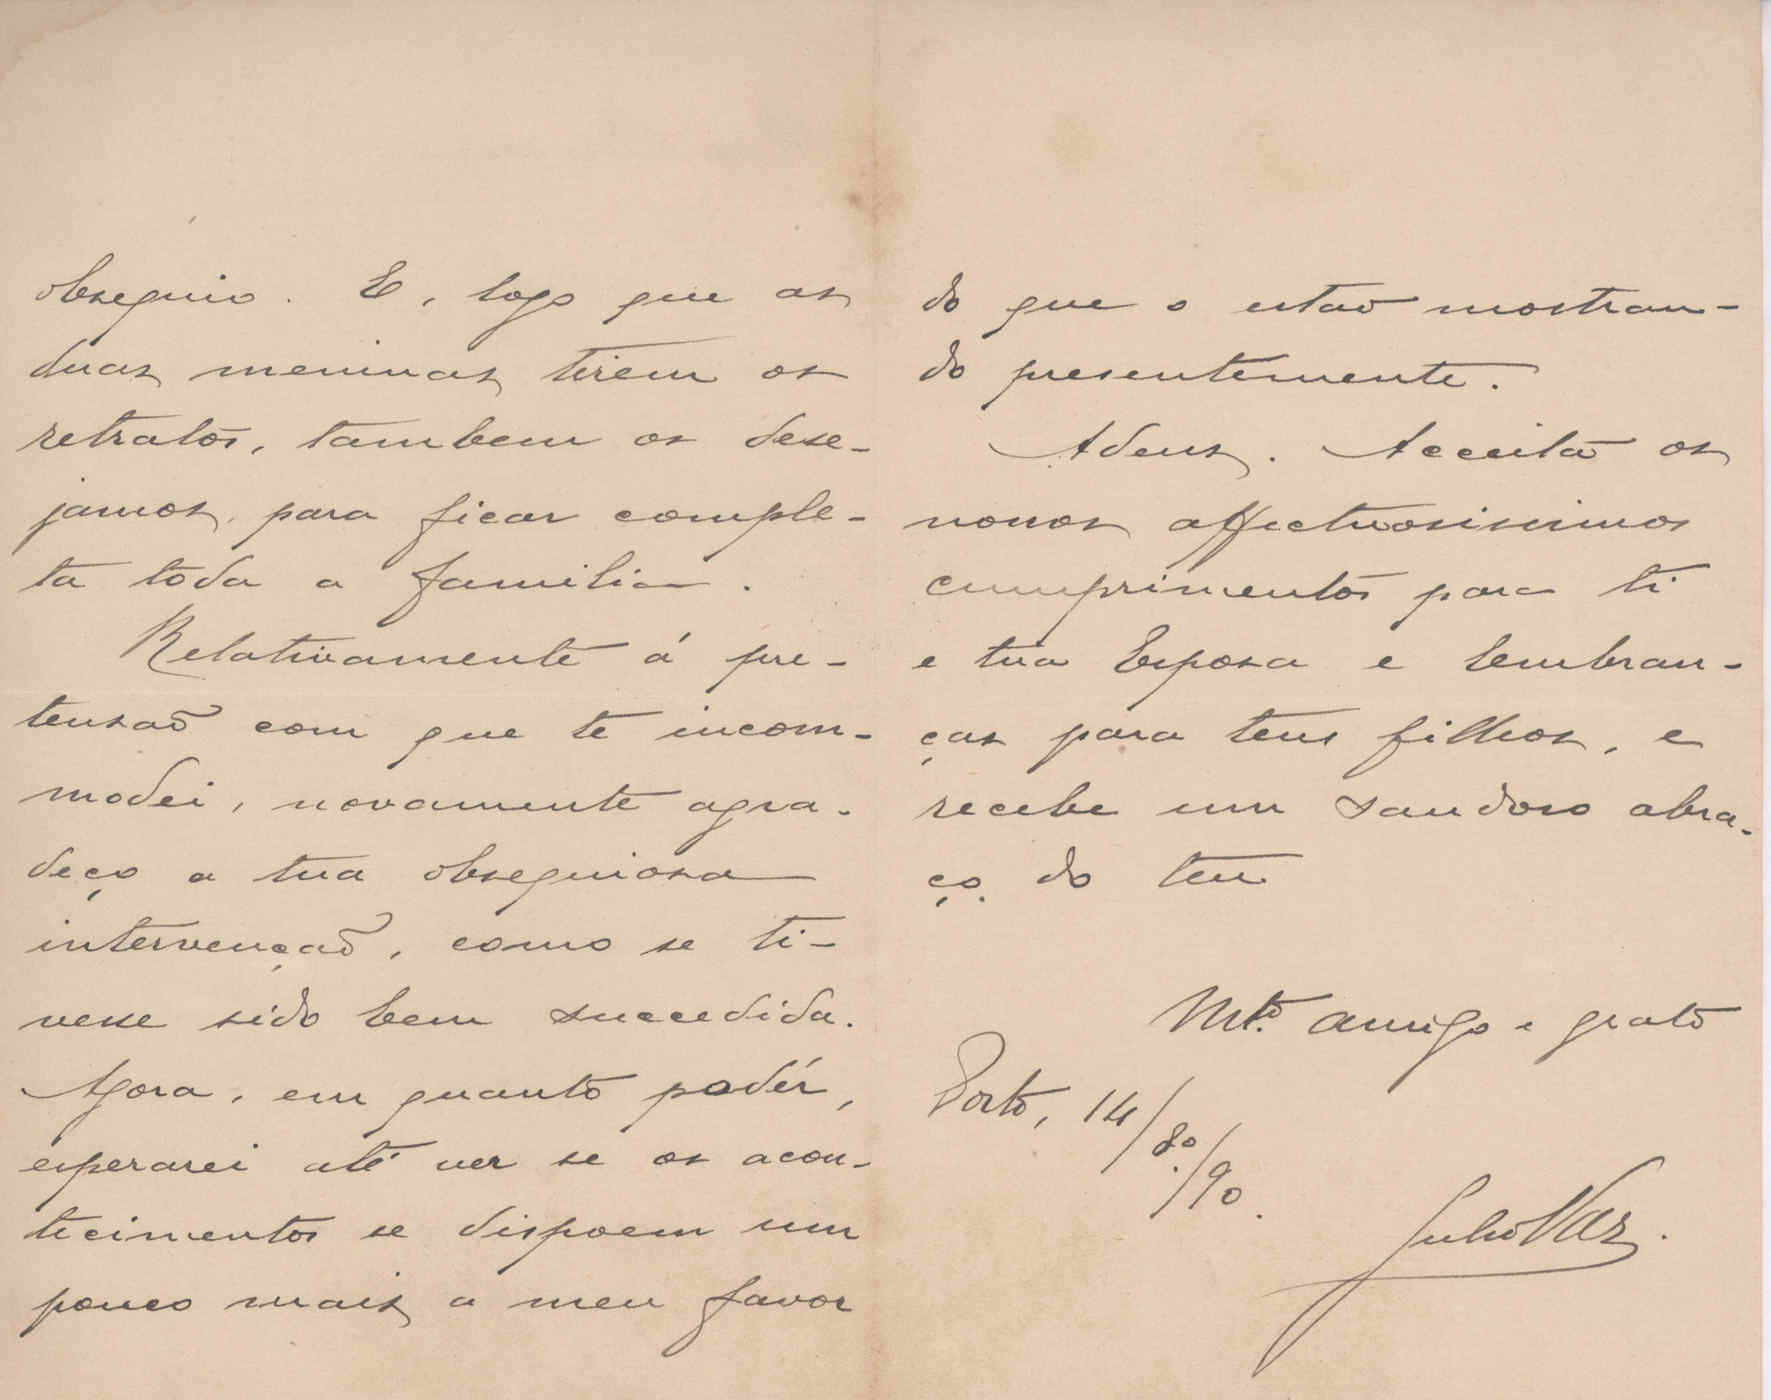 obsequio. E, logo que as
duas meninas tirem os
retratos, tambem os dese-
jamos, para ficar comple-
ta toda a familia.
Relativamente á pre-
tensaõ com que te incom-
modei, novamente agra-
deço a tua obsequiosa
intervençaõ, como se ti-
vesse sido bem succedida.
Agora, em quanto podér,
esperarei até ver se os acon-
tecimentos se dispoem um
pouco mais a meu favor
do que o estaõ mostran-
do presentemente.
Adeus. Acceita os
nossos affectuosissimos
cumprimentos para ti
e tua Esposa e lembran-
ças para teus filhos, e
recebe um saudoso abra-
ço do teu
Mtº. amigo e grato
Porto, 14/8º/90.
Julio Vaz.